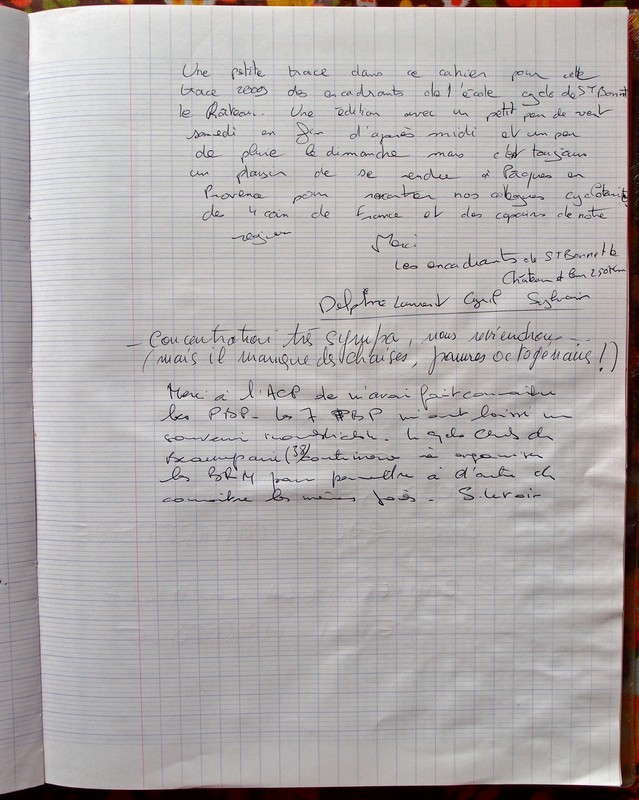 Une petite trace dans ce cahier pour cette
trace 2009 des encadrants de l'école cyclo de ST Bonnet
le Une édition avec un petit peu de vent
samedi en fin d'après midi et un peu
de pluie le dimanche mais c'est toujours
un plaisir de se rendre à Pâques en
Provence pour nos collègues
des 4 coin de France et des copains de notre
region
Merci
Les encadrants de ST Bonnet le
Château et leur
Delphine Laurent Cyril Sylvain
- Concentration très sympa, nous reviendrons...
(mais il manque des chaises, pauvres octogénaires!)
Merci à l'ACP de m'avoir fait connaître
les PBP. Les 7 PBP m'ont laissé un
souvenir inoubliable. Le cyclo club de
Beaurepaire (38) continuera à organiser
les BRM pour permettre à d'autres de
connaître les mêmes joies. S.